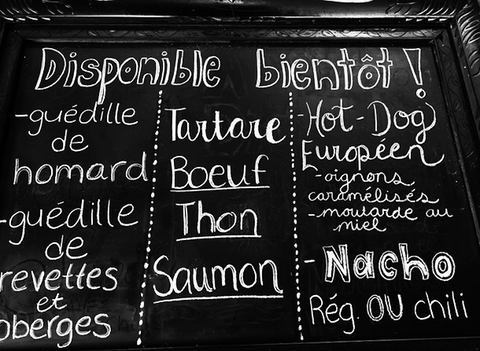 Disponible bientôt !
-guédille
de
homard
-guédille
de
revettes
et
oberges
Tartare
Boeuf
Thon
Saumon
-Hot-Dog
Européen
-oignons
caramélisés
-moutarde au
miel
-Nacho
Rég. OU chili